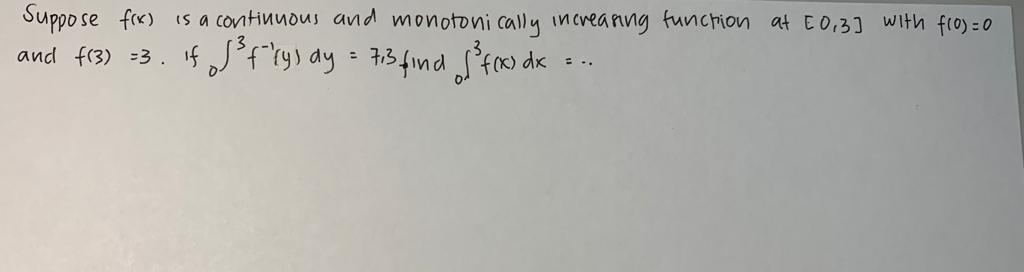 Suppose f(x) is a continuous and monotonically increasing function at [0,3] with f(0)=0
and f(3) =3. if ₀∫³ f⁻¹(y) dy = 7,3 find ₀∫³ f(x) dx = ..